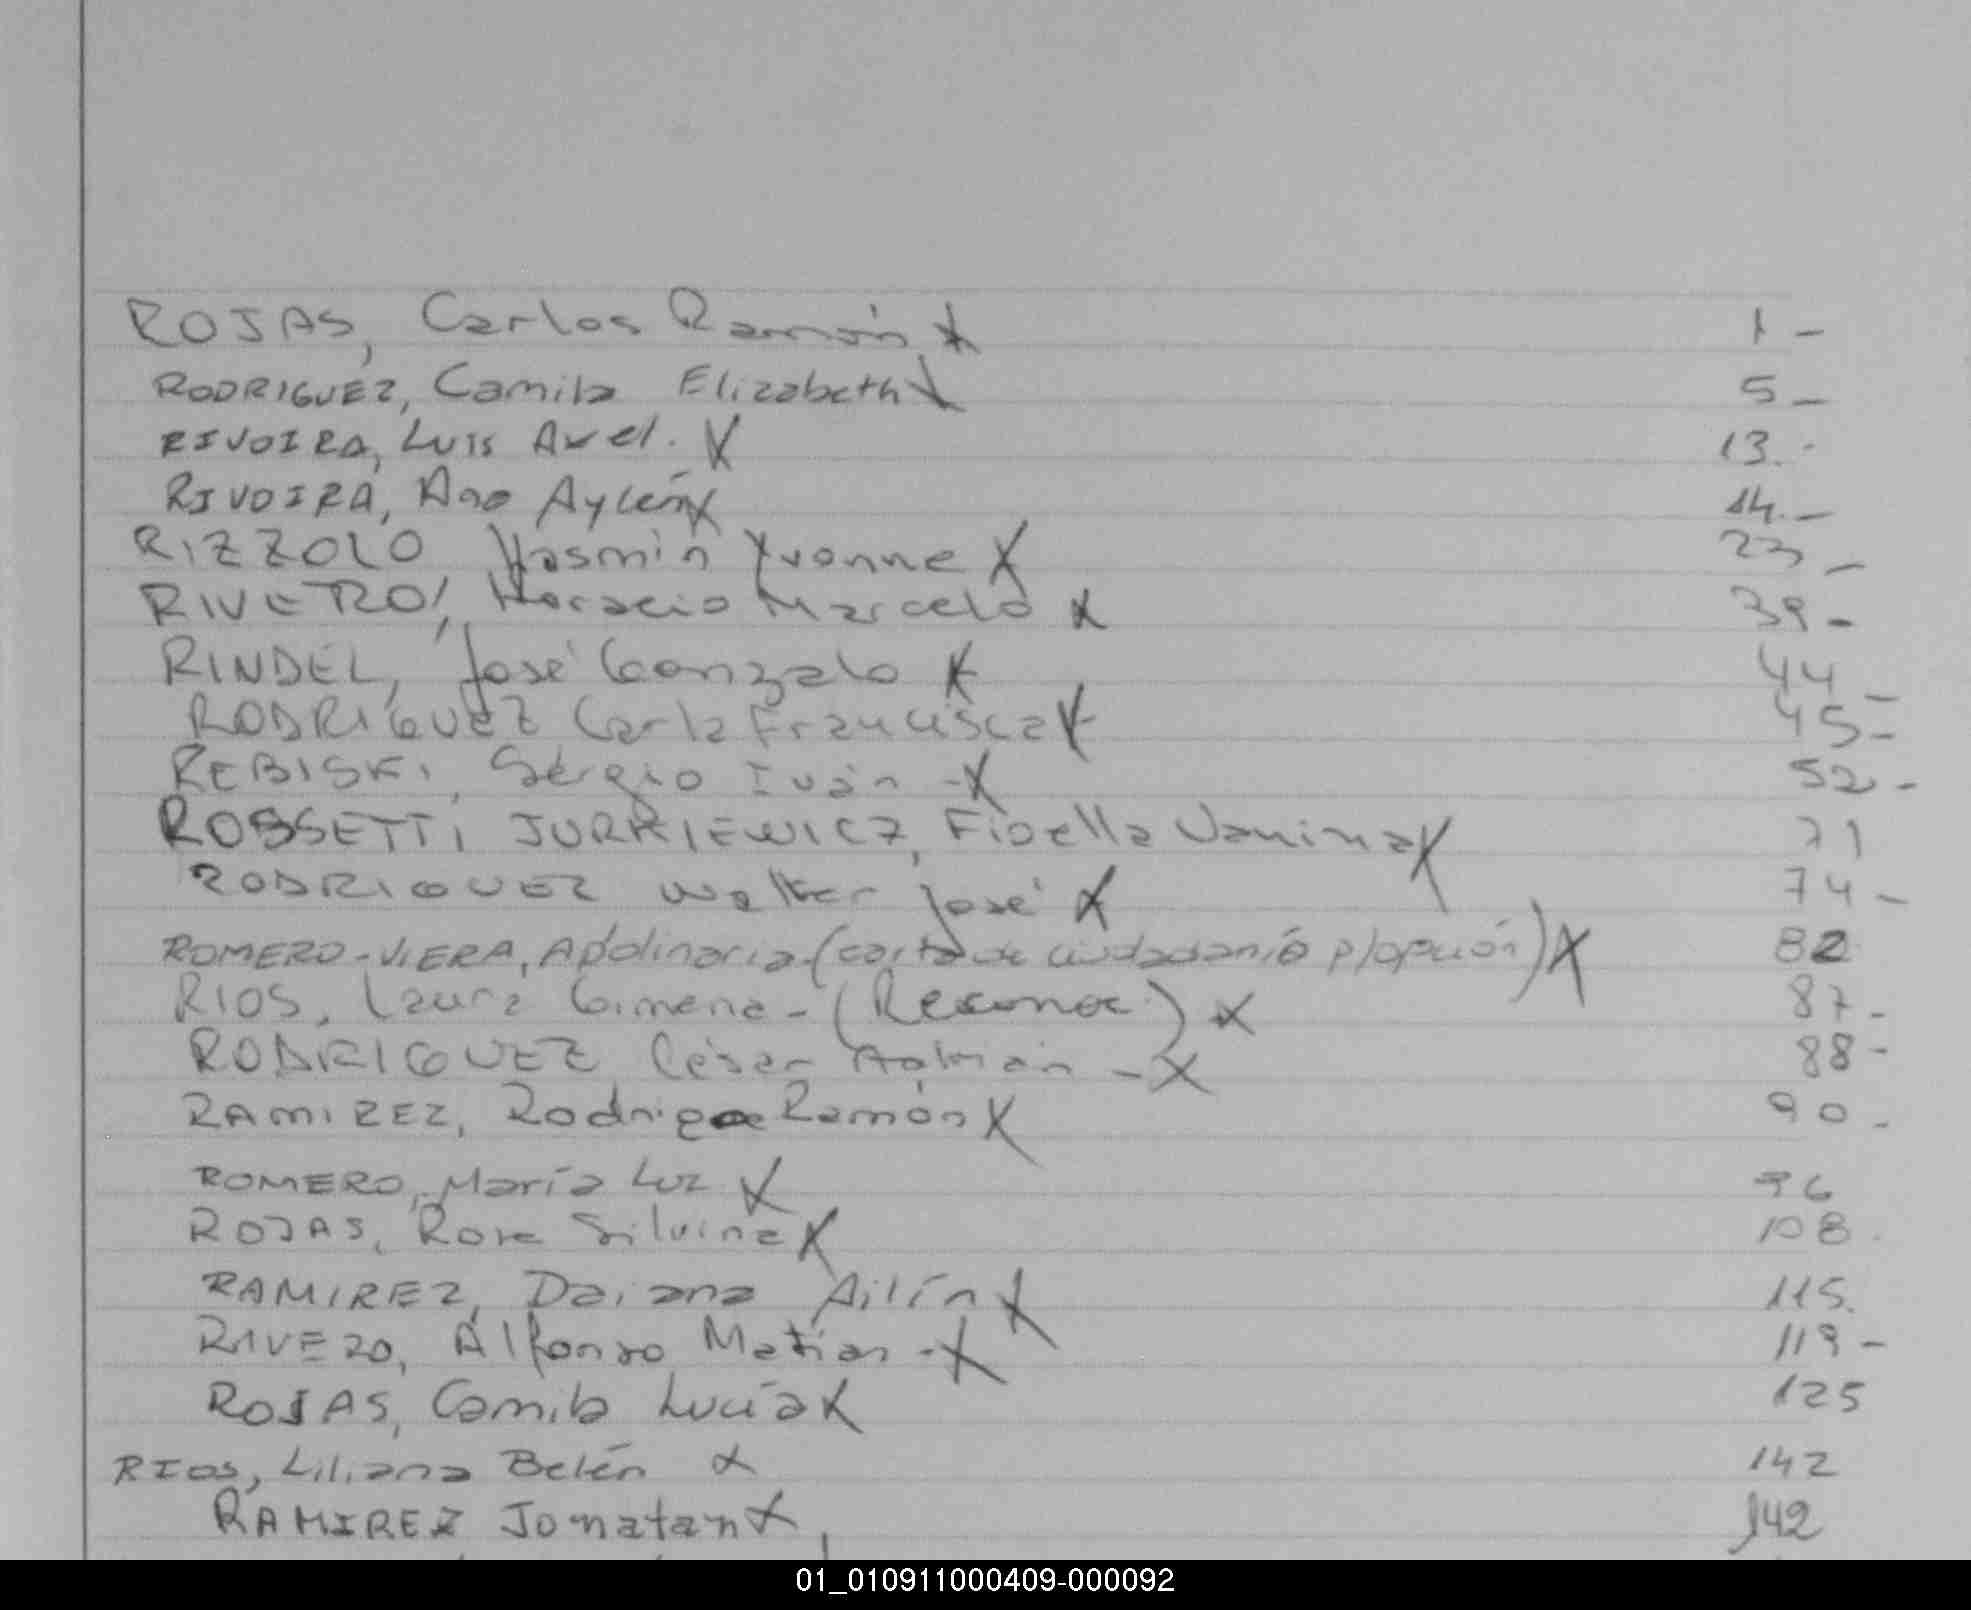 ROJAS, Carlos Ramón X 1 -
RODRIGUEZ, Camila Elizabeth X 5 -
RIVOIRA, Luis Axel. X 13.-
RIVOIRA, Ana Aylén X 14.-
RIZZOLO Yasmin Yvonne X 23 -
RIVERO, Horacio Marcelo X 39 -
RINDEL, José Gonzalo X 44 -
RODRIGUEZ Carla Francisca X 45 -
REBISKI, Sergio Iván - X 52 -
ROSSETTI JURKIEWICZ, Fioella Vanina X 71
RODRIGUEZ Walter José X 74 -
ROMERO-VIERA, Apolinaria-(carta de ciudadanía p/opción) X 82
RIOS, Laura Gimena - (Reconoc.) X 87 -
RODRIGUEZ César - X 88 -
RAMIREZ, Rodrigo Ramón X 90 -
ROMERO, María Luz X 96
ROJAS, Rosa Silvina X 108.
RAMIREZ, Daiana Ailín X 115.
RIVERO, Alfonso Matías - X 119 -
ROJAS, Camila Lucía X 125
RIOS, Liliana Belén X 142
RAMIREZ Jonatan X 142
01_010911000409-000092